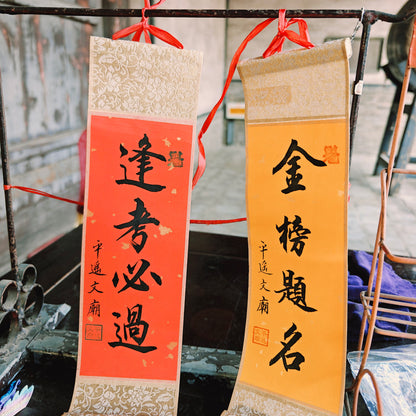 逢考必過
平遙文廟
金榜題名
平遙文廟